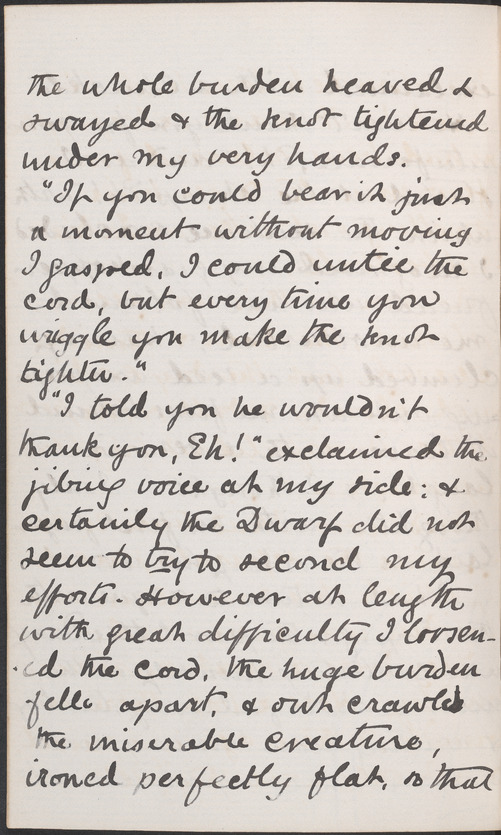 the whole burden heaved &
swayed & the knot tightened
under my very hands.
"If you could bear it just
a moment without moving
I gasped, I could untie the
cord, but every time you
wriggle you make the knot
tighter."
"I told you he wouldn't
thank you, Eh!" exclaimed the
jibing voice at my side: &
certainly the Dwarf did not
seem to try to second my
efforts. However at length
with great difficulty I loosen-
ed the cord, the huge burden
fell apart, & out crawled
the miserable creature,
ironed perfectly flat, so that